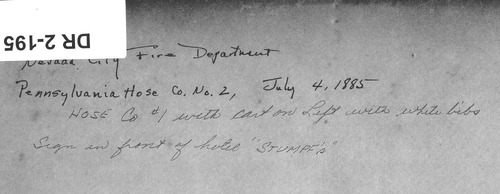 DR 2-195
Nevada City Fire Department
Pennsylvania Hose Co. No. 2, July 4, 1885
HOSE Co #1 with cart on Left with white bibs
Sign in front of hotel "STUMPF'S"